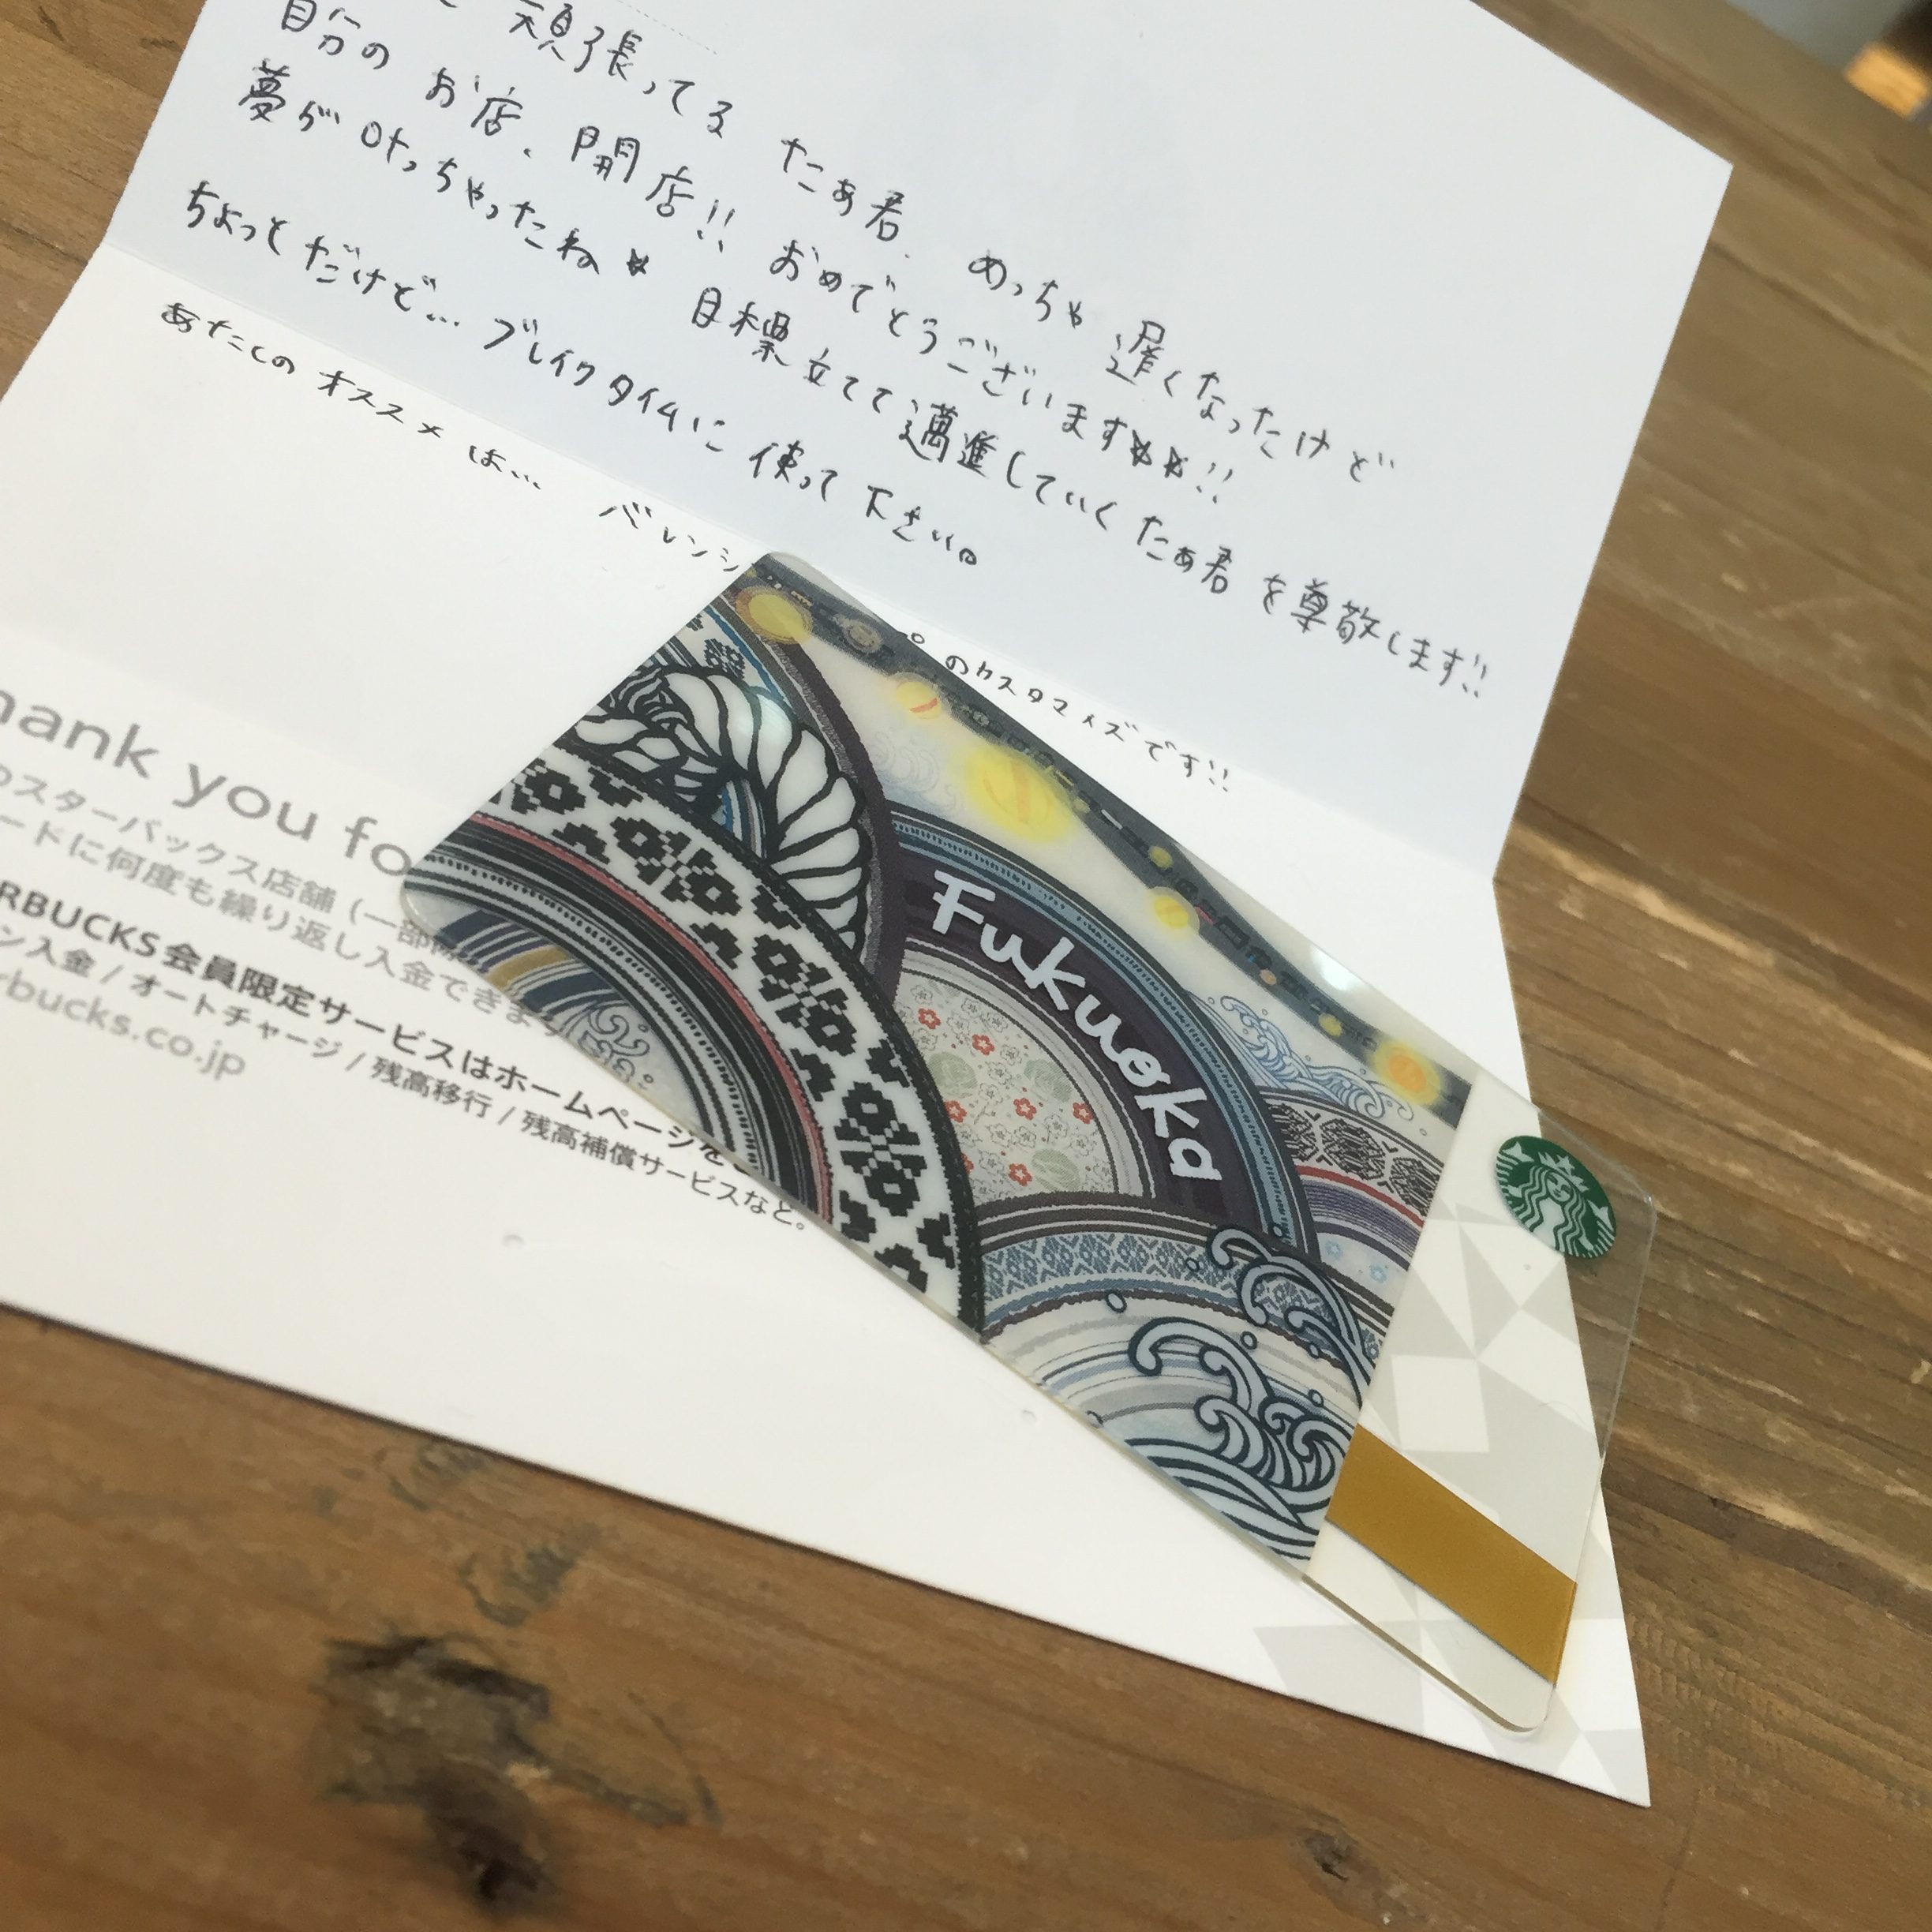 頑張ってる たぁ君. めっちゃ 遅くなったけど
自分の お店、開店!! おめでとうございます!!
夢が 叶っちゃったね 目標立てて邁進していく たぁ君 を尊敬します!!
ちょっと だけど... ブレイクタイムに 使って 下さい。
あたしの オススメ は... バレンシ
プ のカスタマイズです!!
hank you fo
スターバックス店舗 (一部
ードに何度も繰り返し入金できま
RBUCKS会員限定サービスはホームページを
ン入金 / オートチャージ / 残高移行 / 残高補償サービスなど。
rbucks.co.jp
Fukuoka